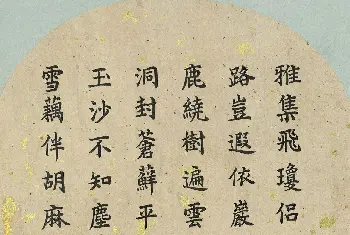 雅集飛瓊侣
路豈遐依巖
鹿繞樹遍雲
洞封蒼蘚平
玉沙不知塵
雪藕伴胡麻